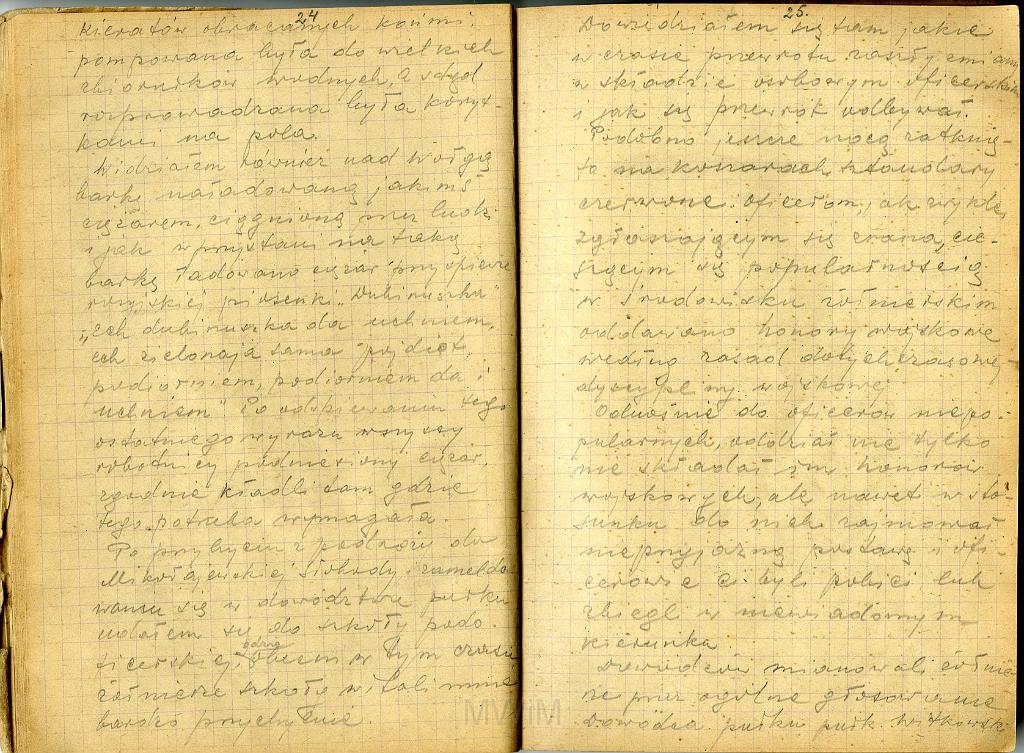 24
kieratów obracanych końmi,
pompowana była do wielkich
zbiorników wodnych, a stąd
rozprowadzana była koryt-
kami na pola.
Widziałem również nad Wołgą
barkę naładowaną jakimś
ciężarem, ciągnioną przez ludzi
i jak w przystani na taką
barkę ładowano ciężar przy śpiewie
rosyjskiej piosenki „Dubinuszka"
„Ech dubinuszka da uchniem,
ech zielonaja sama pojdiot,
podiorniem, podiorniem da i
uchniem" Po odśpiewaniu tego
ostatniego wyrazu wszyscy
robotnicy podniesiony ciężar,
zgodnie kładli tam gdzie
tego potrzeba wymagała.
Po przybyciu z podróży do
Mikołajewskiej Słobody i zameldo
waniu się w dowództwie pułku
udałem się do szkoły podo-
ficerskiej. Obecni w tym czasie
żołnierze szkoły witali mnie
bardzo przychylnie.
25.
Dowiedziałem się tam jakie
w czasie przewrotu zaszły zmiany
w składzie osobowym oficerskim
i jak się przewrót odbywał.
Podobno jeszcze nocą zatknię-
to na koszarach sztandary
czerwone. Oficerom, jak zwykle,
zgłaszającym się z rana, cie-
szącym się popularnością
w środowisku żołnierskim
oddawano honory wojskowe
według zasad dotychczasowej
dyscypliny wojskowej.
Odnośnie do oficerów niepo-
pularnych, oddział nie tylko
nie składał im honorów
wojskowych, ale nawet w sto-
sunku do nich zajmował
nieprzyjazną postawę i ofi-
cerowie ci byli pobici lub
zbiegli w niewiadomym
kierunku
Dowódców mianowali żołnie
rze przez ogólne głosowanie
Dowódca pułku pułk. Witkowski
MWiM